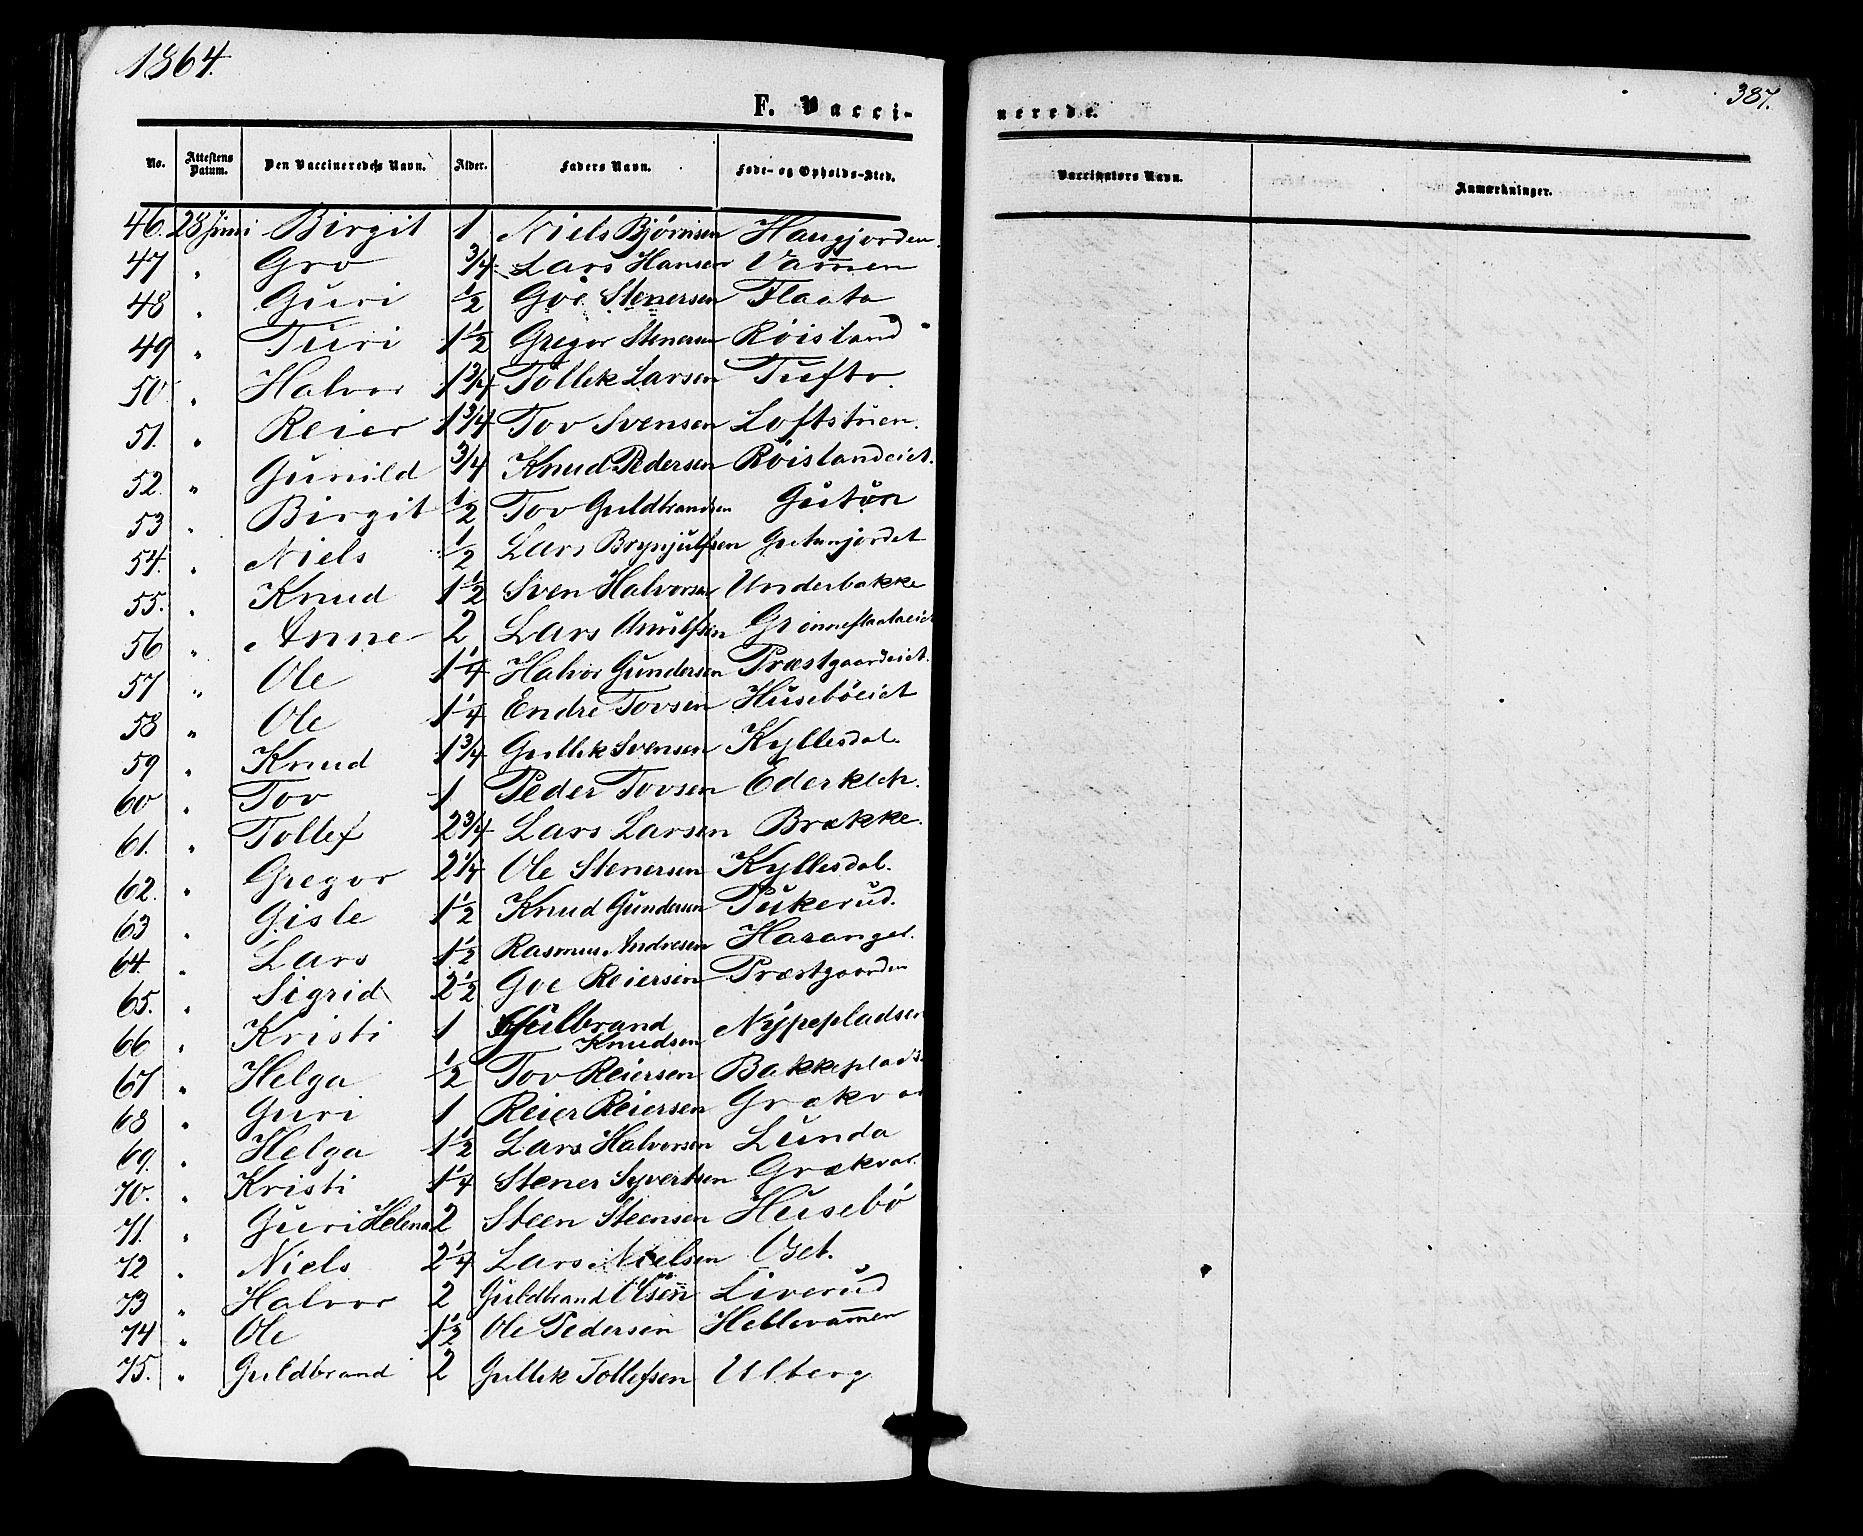 1864.
387.
F. Vacci-
nerede.
No. Attestens Datum. Den Vaccineredes Navn. Alder. Faders Navn. Føde- og Opholds-Sted. Vaccinators Navn. Anmærkninger.
46. 28 Juni Birgit 1 Niels Bjørnsen Haugjorden.
47 " Gro 3/4 Lars Hansen Vam̄en
48 " Guri 1/2 Goe Stenersen Flaata
49 " Turi 1 1/2 Gregor Stenersen Röisland
50 " Halvor 1 3/4 Tollek Larsen Tufto.
51. " Reier 1 3/4 Tov Svensen Loftstuen.
52. " Gunild 3/4 Knud Pedersen Röislandeiet.
53 " Birgit 1/2 Tov Guldbrandsen Gutøn
54. " Niels 1/2 Lars Brynjulfsen
55. " Knud 1 1/2 Sven Halvorsen Underbakke
56 " Anne 2 Lars
57 " Ole 1 1/4 Halvor Gundersen Præstgaardeiet.
58 " Ole 1 1/4 Endre Tovsen Huseböeiet
59 " Knud 1 3/4 Gullik Svensen Kyllesdal.
60 " Tov 1 Peder Tovsen Ederklep.
61. " Tollef 2 3/4 Lars Larsen Brække.
62. " Gregor 2 1/4 Ole Stenersen Kyllesdal.
63 " Gisle 1 1/2 Knud Gundersen Pukerud.
64. " Lars 1 1/2 Rasmus Andresen
65. " Sigrid 2 1/2 Goe Reiersen Præstgaarden
66 " Kristi 1 Gulbrand Knudsen Nypepladsen
67 " Helga 1/2 Tov Reiersen Bakkeplads
68 " Guri 1 Reier Reiersen Grækvar
69. " Helga 1 1/2 Lars Halvorsen Lunda
70. " Kristi 1 1/4 Stener Syvertsen Grækvar.
71. " Guri Helena 2 Steen Steensen Husebö
72 " Niels 2 1/4 Lars Nielsen Oset.
73 " Halvor 2 Guldbrand Olsen Liverud
74 " Ole 1 1/2 Ole Pedersen Hellevam̄en
75. " Guldbrand 2 Gullik Tollefsen Ulberg